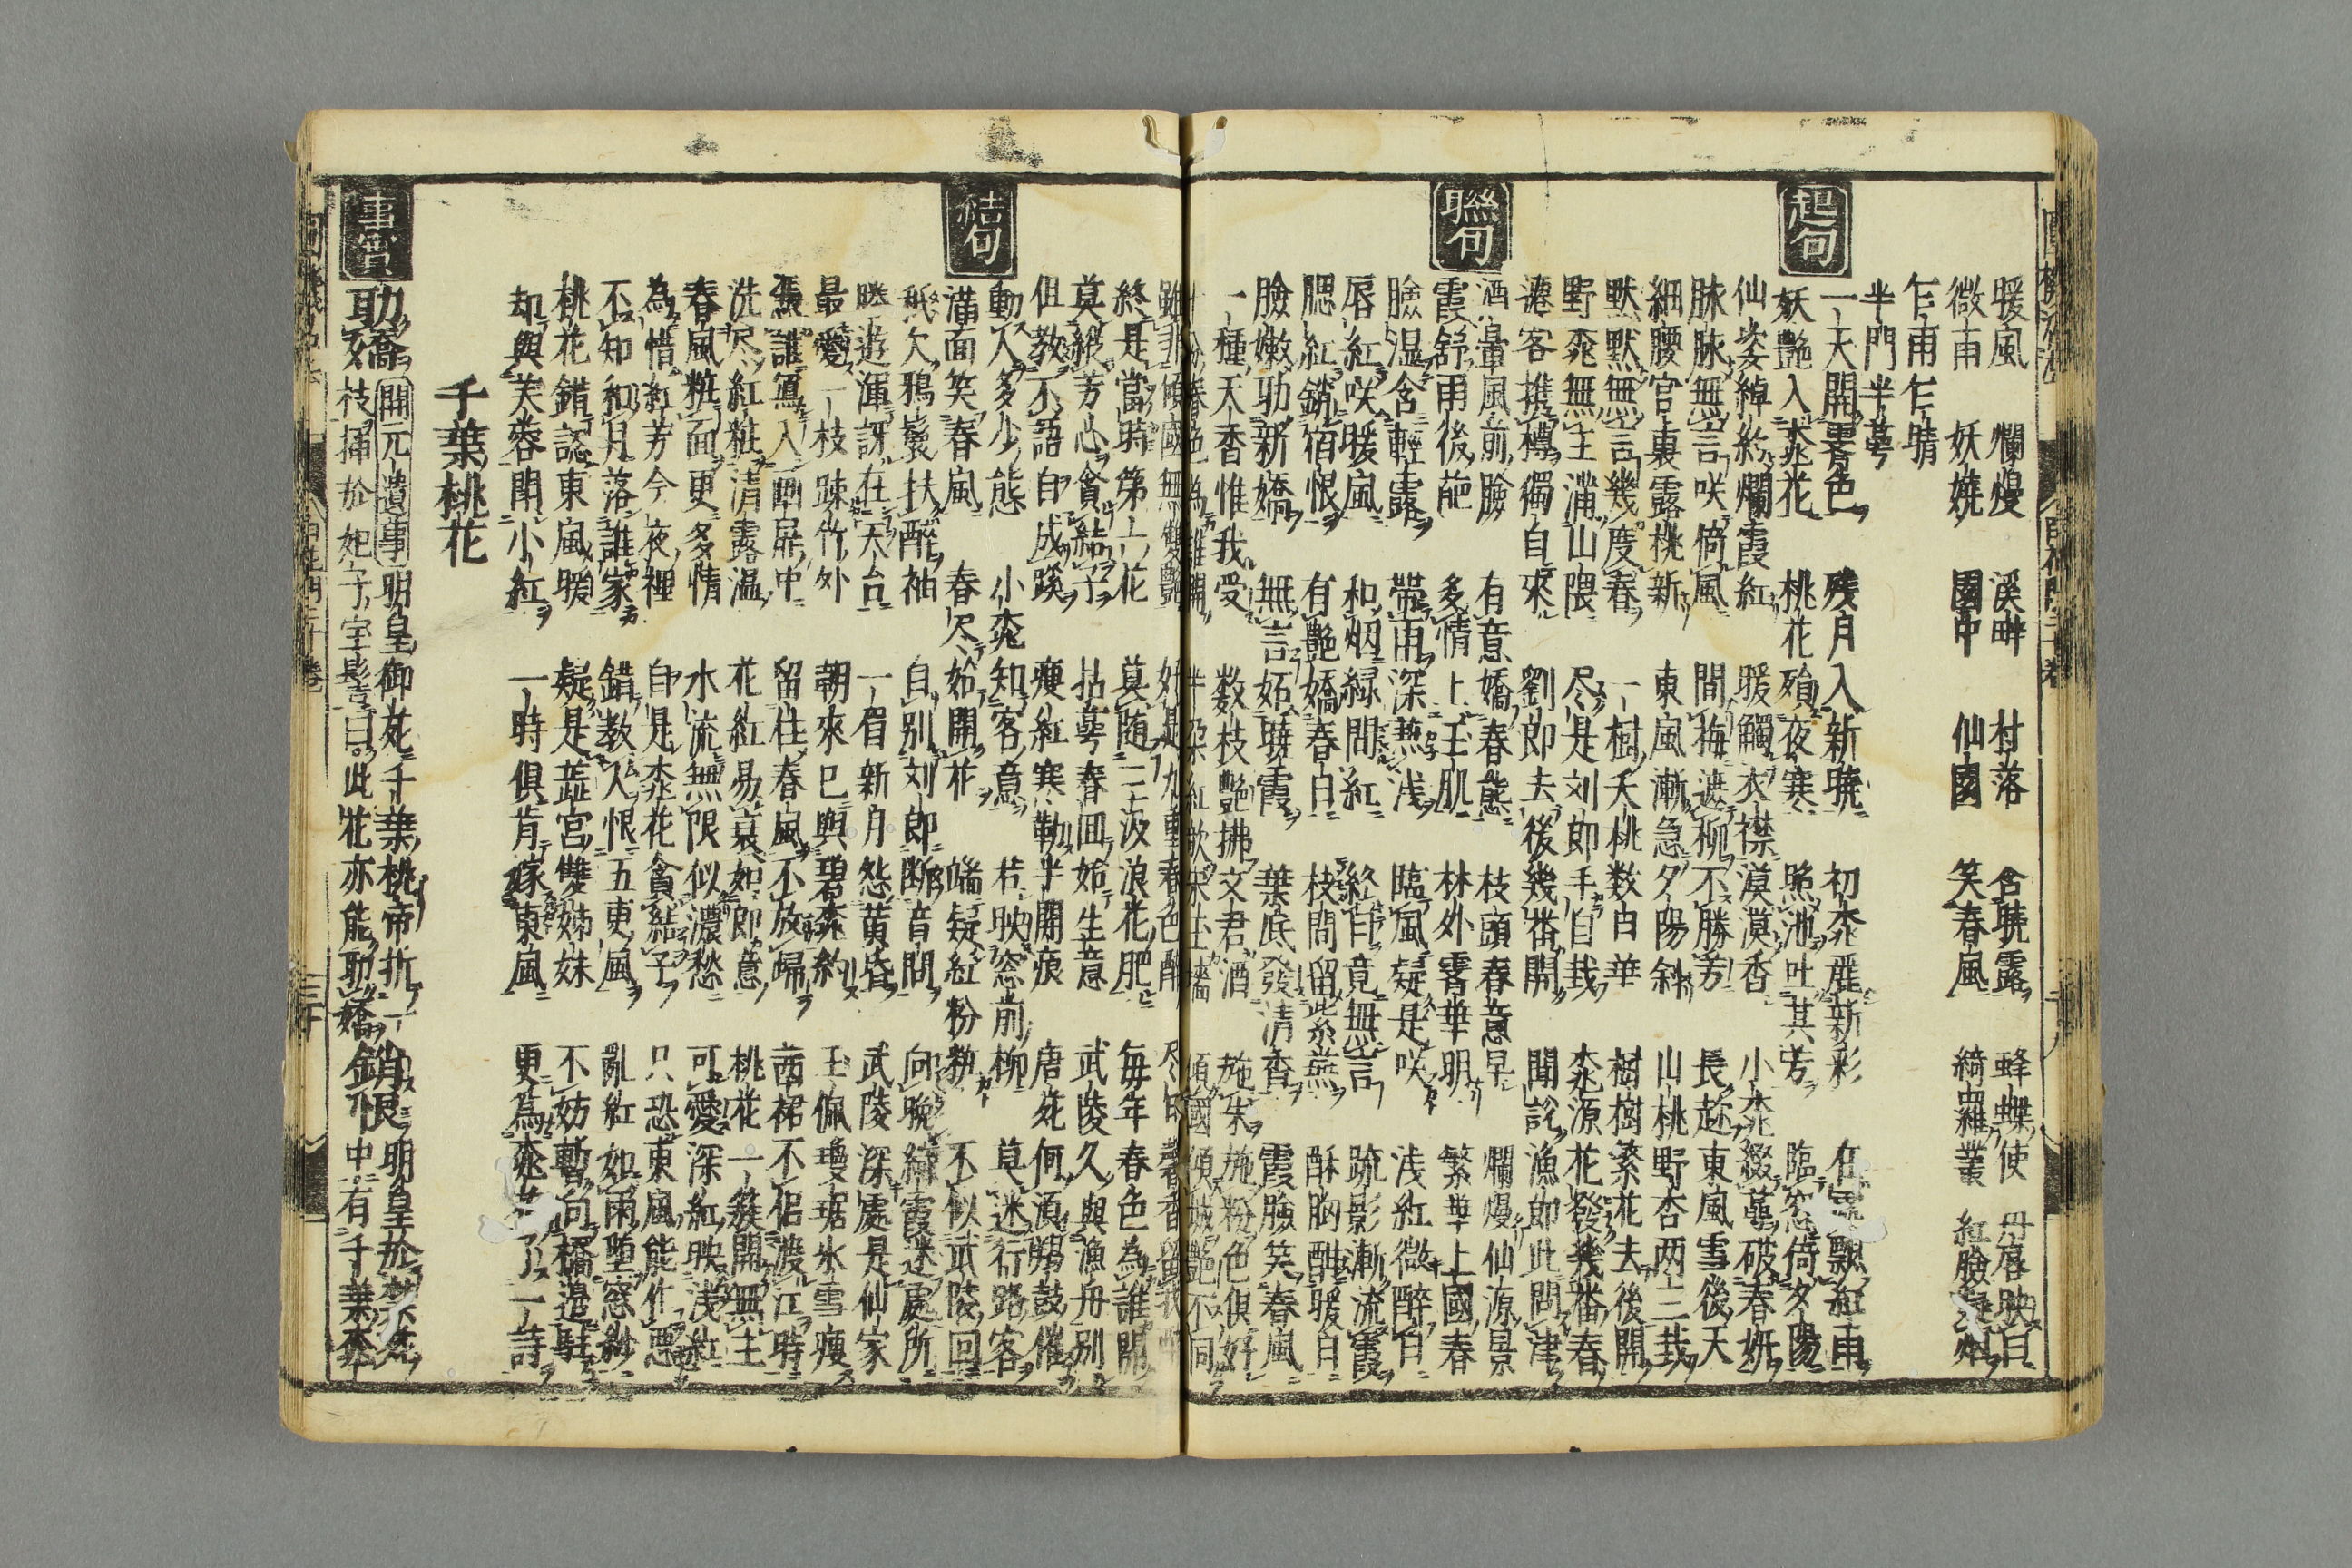 暖風 爛熳 溪畔 村落 含曉露 蜂蝶使 丹唇映白
微雨 妖嬈 國中 仙國 笑春風 綺羅叢 紅臉凝烟
乍雨乍晴
半門半萼
起句
一天開霽色 殘月入新曉 初桃麗新彩 紅雨
妖艷入桃花 桃花殢夜寒 照池吐其芳 臨窓倚夕陽
仙姿綽約爛霞紅 暖觸衣襟漠漠香 小桃綴蕚破春妍
脉脉無言咲倚風 間梅遮柳不勝芳 長趁東風雪後天
細腰宮裏露桃新 東風漸急夕陽斜 山桃野杏兩三栽
默默無言幾度春 一樹夭桃数白華 樹樹繁花去後開
野桃無主滿山隈 尽是刘郎手自栽 桃源花發幾番春
遷客携樽獨自來 劉郎去後幾番開 聞說漁郎此問津
聯句
酒暈風前臉 有意嬌春態 枝頭春意早 爛熳仙源景
霞舒雨後葩 多情上玉肌 林外霽華明 繁華上國春
臉温含輕露 帶雨深㷱浅 臨風疑是咲 浅紅微醉白
唇紅咲暖風 和烟緑間紅 終自竟無言 疏影漸流霞
腮紅銷宿恨 有艷嬌春白 枝間留紫燕 酥胸酣暖白
臉嫩助新嬌 無言妬曉霞 葉底發清香 霞臉笑春風
一種天香惟我受 数枝艷拂文君酒 施朱施粉色俱好
春色為誰開 半朶紅欹宋玉墻 傾國傾城艷不同
雖非傾國無雙艷 好是九重春色醉
終是當時第一花 莫随三汲浪花肥 每年春色為誰開
莫緩芳心貪結子 拈萼春回始生意 武陵久與漁舟別
但教不語自成蹊 瘦紅寒勒半開痕 唐苑何須羯鼓催
結句
動人多少態 小桃知客意 若映窓前柳 莫迷行路客
滿面笑春風 春尽始開花 端疑紅粉𥹢 不似武陵回
秪欠鴉鬟扶醉袖 自別刘郎断音問 向晚綺霞迷處所
勝遊渾訝在天台 一眉新月怨黄昏 武陵深處是仙家
最愛一枝踈竹外 朝來已與碧桃約 玉佩瓊琚氷雪瘦
張誰寫入画屏中 留住春風不放歸 茜裙不侣渡江時
洗尽紅粧清露温 花紅易衰如郎意 桃花一簇開無主
春風粧面更多情 水流無限似濃愁 可愛深紅映浅紅
為惜紅芳今夜裡 自是桃花貪結子 只恐東風能作惡
不知和月落誰家 錯教人恨五更風 亂紅如雨堕窓紗
桃花錯認東風暖 疑是蕋宮雙姊妹 不妨暫向橋邉駐
却與芙蓉開小紅 一時俱肯嫁東風 更為桃花了一詩
千葉桃花
事實
助嬌 開元遺事 明皇御苑千葉桃帝折一
枝挿於妃子宝髻曰此花亦能助嬌 銷恨 明皇於禁苑
中有千葉桃